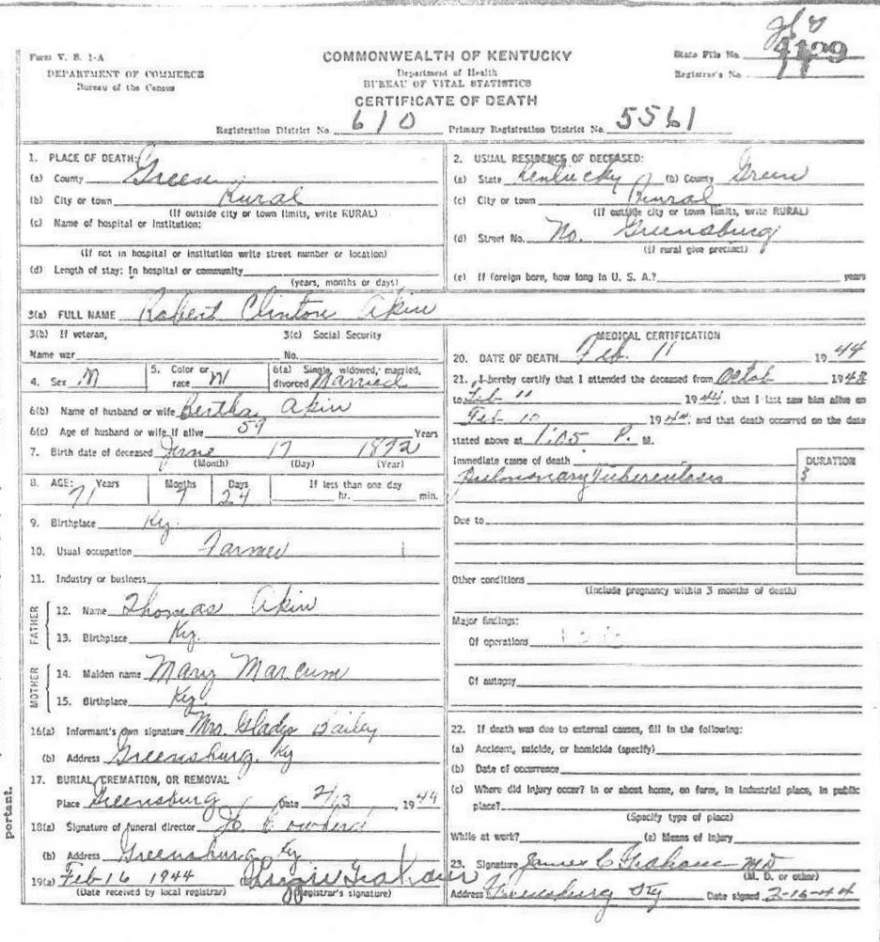 Form V. S. 1-A
DEPARTMENT OF COMMERCE
Bureau of the Census
COMMONWEALTH OF KENTUCKY
Department of Health
BUREAU OF VITAL STATISTICS
CERTIFICATE OF DEATH
State File No. 4129
Registrar's No.
Registration District No. 610 Primary Registration District No. 5561
1. PLACE OF DEATH:
(a) County Green
(b) City or town Rural
(If outside city or town limits, write RURAL)
(c) Name of hospital or institution:
(If not in hospital or institution write street number or location)
(d) Length of stay: In hospital or community
(years, months or days)
2. USUAL RESIDENCE OF DECEASED:
(a) State Kentucky (b) County Green
(c) City or town Rural
(If outside city or town limits, write RURAL)
(d) Street No. No. Greensburg
(If rural give precinct)
(e) If foreign born, how long in U. S. A.? years
3(a) FULL NAME Robert Clinton Akin
3(b) If veteran,
Name war
3(c) Social Security
No.
4. Sex M
5. Color or
race W
6(a) Single, widowed, married,
divorced Married
6(b) Name of husband or wife Bertha Akin
6(c) Age of husband or wife if alive 59 Years
7. Birth date of deceased June 17 1872
(Month) (Day) (Year)
8. AGE: Years Months Days If less than one day
71 7 24 hr. min.
9. Birthplace Ky.
10. Usual occupation Farmer
11. Industry or business
FATHER
12. Name Thomas Akin
13. Birthplace Ky.
MOTHER
14. Maiden name Mary Marcum
15. Birthplace Ky.
16(a) Informant's own signature Mrs. Gladys Bailey
(b) Address Greensburg, Ky
17. BURIAL, CREMATION, OR REMOVAL
Place Greensburg Date 2/13, 1944
18(a) Signature of funeral director
(b) Address Greensburg Ky
19(a) Feb 16 1944 Graham
(Date received by local registrar) (Registrar's signature)
MEDICAL CERTIFICATION
20. DATE OF DEATH Feb. 11 1944
21. I hereby certify that I attended the deceased from Octob 1943
to Feb 11 1944, that I last saw him alive on
Feb 10 1944, and that death occurred on the date
stated above at 1:05 P. M.
Immediate cause of death
Pulmonary Tuberculosis
DURATION
Due to
Other conditions
(Include pregnancy within 3 months of death)
Major findings:
Of operations
Of autopsy
22. If death was due to external causes, fill in the following:
(a) Accident, suicide, or homicide (specify)
(b) Date of occurrence
(c) Where did injury occur? In or about home, on farm, in industrial place, in public
place?
(Specify type of place)
While at work? (e) Means of injury
23. Signature James C Graham MD
(M. D. or other)
Address Greensburg Ky Date signed 2-16-44
portant.